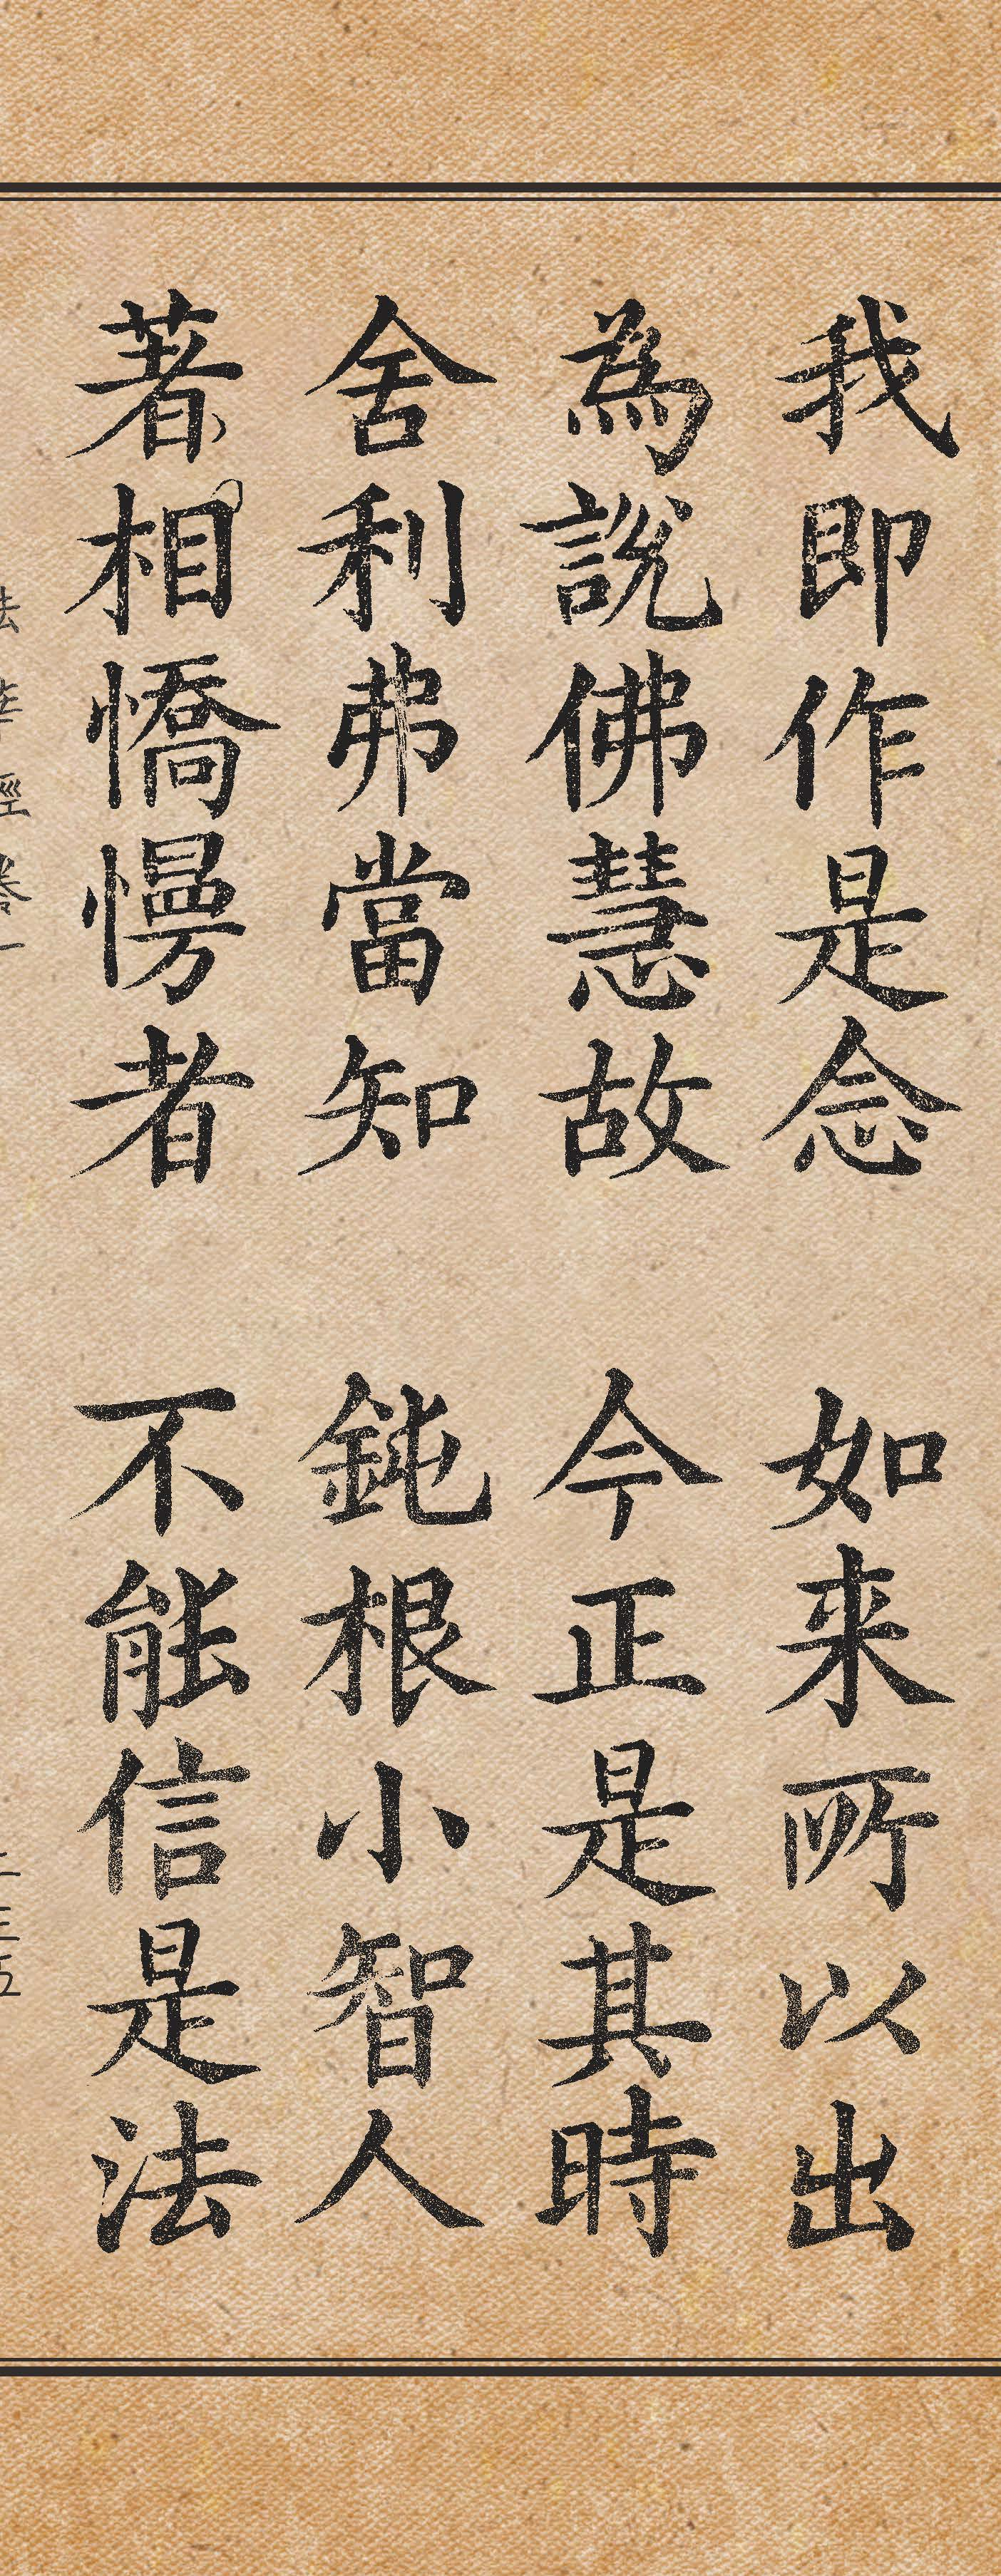 我即作是念　如来所以出
為說佛慧故　今正是其時
舍利弗當知　鈍根小智人
著相憍慢者　不能信是法
法華經卷一　二三五